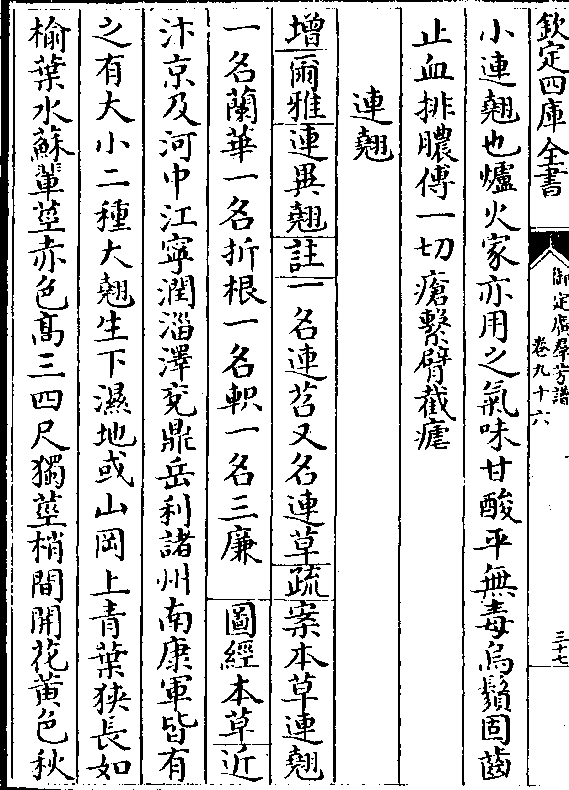 欽定四庫全書
御定廣羣芳譜
卷九十六
三十七
小連翹也爐火家亦用之氣味甘酸平無毒烏鬚固齒
止血排膿傅一切瘡繫臂截瘧
連翹
增爾雅連異翹註一名連苕又名連草疏案本草連翹
一名蘭華一名折根一名軹一名三廉 圖經本草近
汴京及河中江寧潤淄澤兗鼎岳利諸州南康軍皆有
之有大小二種大翹生下濕地或山岡上青葉狹長如
榆葉水蘇輩莖赤色高三四尺獨莖梢間開花黃色秋